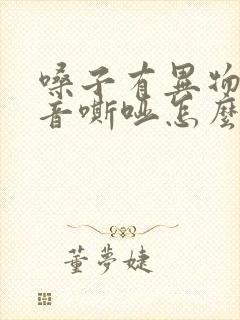 嗓子有異物
音嘶啞怎麼
董夢婕